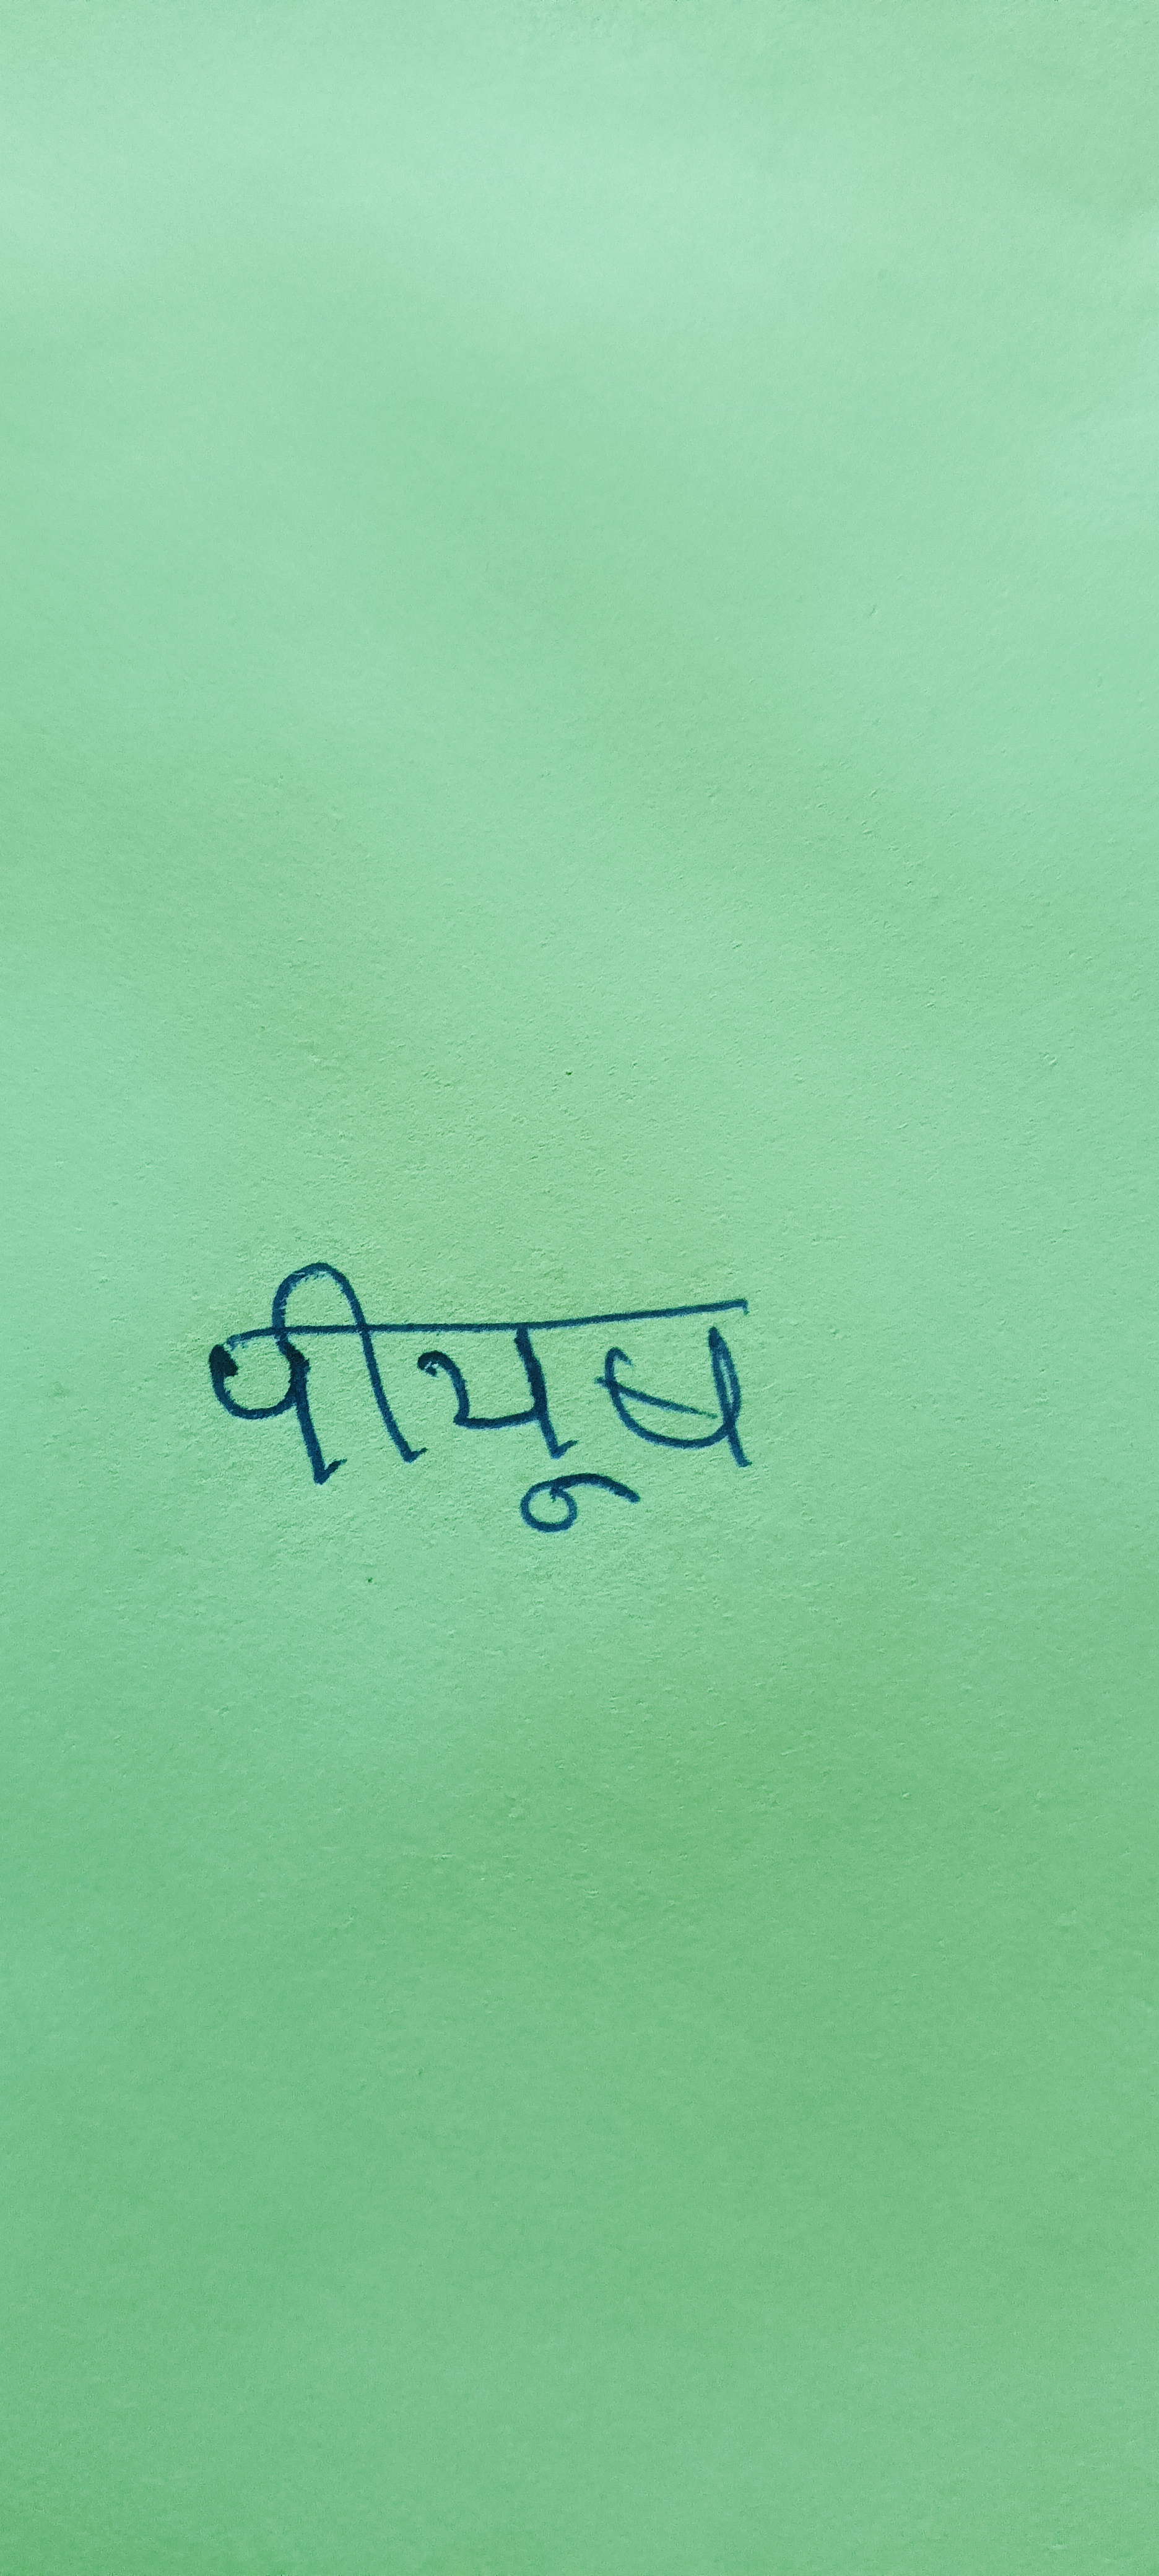 पीयूष